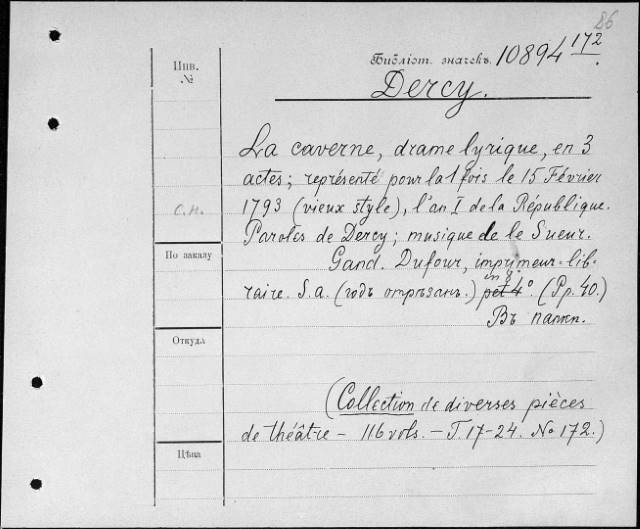 86
Инв. №
Библіот. значекъ. 10894 172.
Dercy.
La caverne, drame lyrique, en 3
actes; représenté pour la 1 fois le 15 Février
1793 (vieux style), l'an I de la République.
С.К.
Paroles de Dercy; musique de le Sueur.
По заказу
Gand. Dufour, imprimeur-lib-
in 8º
raire. S.a. (годъ отрѣзанъ.) pet 4º. (Pp. 40.)
Въ папкѣ.
Откуда
(Collection de diverses pièces
de théâtre – 116 vols. – T. 17-24. No 172.)
Цѣна